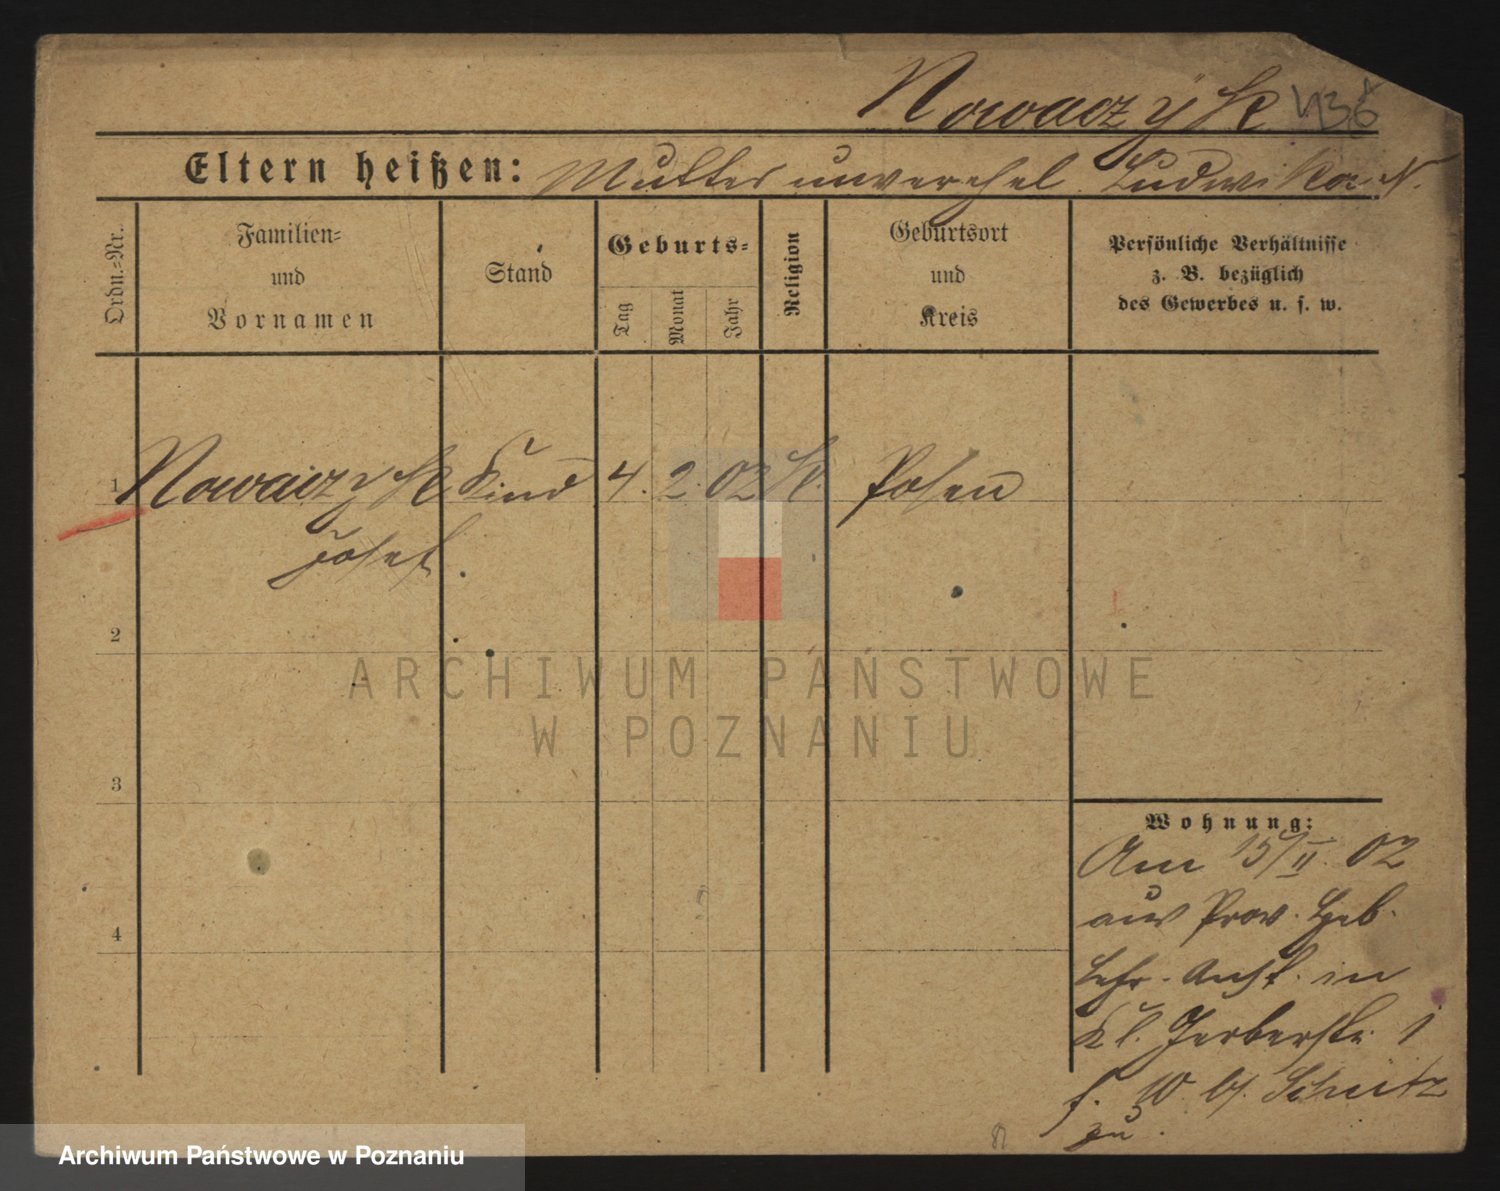 Nowaczyk 436
Eltern heißen: Mutter unverehel. Ludwika N.
Ordn.=Nr.
Familien=
und
Vornamen
Stand
Geburts=
Tag
Monat
Jahr
Religion
Geburtsort
und
Kreis
Persönliche Verhältnisse
z. B. bezüglich
des Gewerbes u. s. w.
1 Nowaczyk Kind 4. 2. 02 K. Posen
Josef.
2
3
4
Wohnung:
Am 15/II. 02
aus Prov. Heb.
Lehr-Anst. in
Kl. Gerberstr. 1
f. W. b/ Schütz
zu.
ARCHIWUM PAŃSTWOWE
W POZNANIU
Archiwum Państwowe w Poznaniu